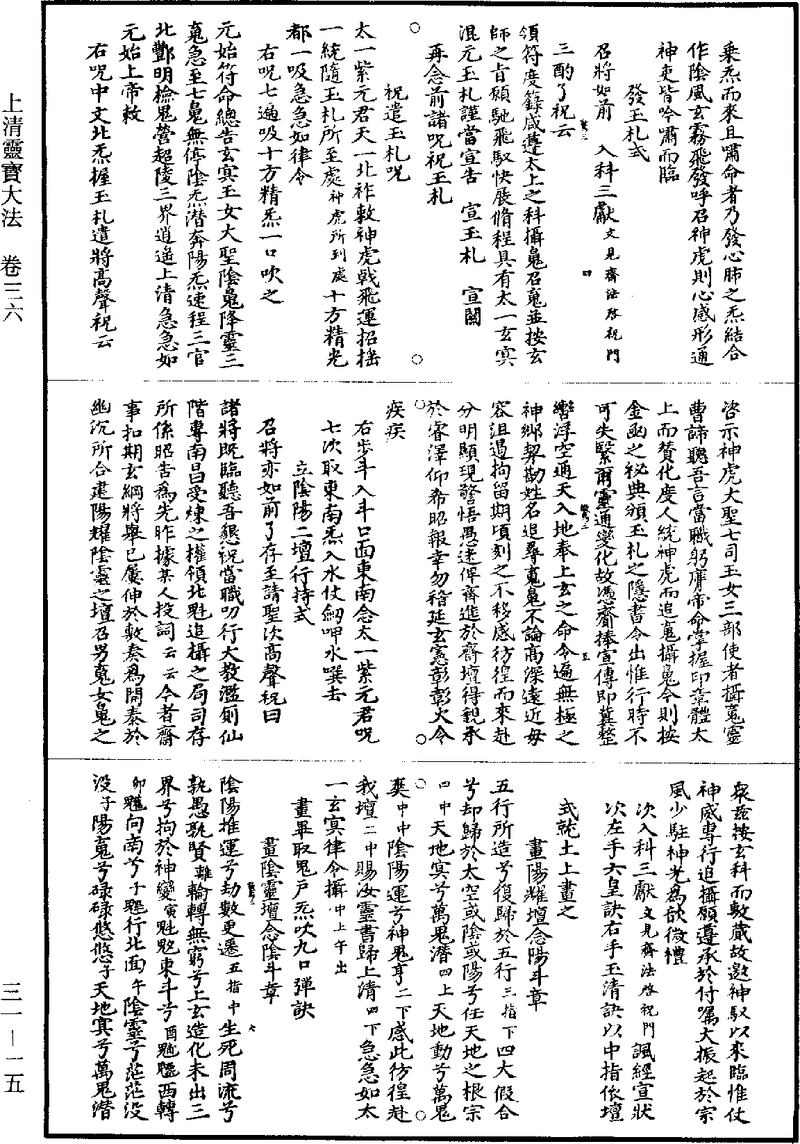 上清靈寶大法　卷三六
三一―一五
乘炁而來且嘯命者乃發心肺之炁結合
作陰風玄霧飛發呼召神虎則心感形通
神吏皆吟嘯而臨
發玉札式
召將如前　入科三獻文見齋法啓祝門
三酌了祝云
領符度籙咸遵太上之科攝䰟召䰟並按玄
師之旨願馳飛馭快展脩程具有太一玄冥
混元玉札謹當宣告　宣玉札　宣關
再念前諸呪祝玉札
祝遣玉札呪
太一紫元君天一北祚敕神虎戟飛運招搖
一統隨玉札所至處神虎所到處十方精光
都一吸急急如律令
右呪七遍吸十方精炁一口吹之
元始符命總告玄冥玉女大聖陰鬼降靈三
䰟急至七鬼無停陰炁潛奔陽炁速程三官
北酆明檢鬼營超陵三界逍遥上清急急如
元始上帝敕
右呪中文北炁握玉札遣將高聲祝云
咨示神虎大聖七司玉女三部使者攝䰟靈
曹諦聽吾言當職躬膺帝命掌握印章體太
上而贊化度人統神虎而追䰟攝鬼今則按
金函之秘典頒玉札之隱書令出惟行時不
可失緊爾靈通變化故憑齎捧宣傳即冀整
轡浮空通天入地奉上玄之命令遍無極之
神鄉契勘姓名追尋䰟鬼不論高深遠近毋
容沮遏拘留期頃刻之不移感彷徨而來赴
分明顯現警悟愚迷俾齊進於齋壇得親承
於睿澤仰希昭報幸勿稽延玄憲彰彰火令
疾疾
右步斗入斗口面東南念太一紫元君呪
七次取東南炁入水仗劒呷水噀去
立陰陽二壇行持式
召將亦如前了存至請聖次高聲祝曰
諸將既臨聽吾懇祝當職叨行大教濫厠仙
階專南昌受煉之權領北魁追攝之局司存
所係昭告爲先昨據某人投詞云云今者齋
事扣期玄綱將舉已屢伸於敷奏爲開泰於
幽沉所合建陽耀陰靈之壇召男䰟女鬼之
衆茲按玄科而敷蕆故邀神馭以來臨惟仗
神威專行追攝願遵承於付囑大振起於宗
風少駐神光爲歆微禮
次入科三獻文見齋法啓祝門諷經宣狀
次左手六皇訣右手玉清訣以中指依壇
式就土上畫之
畫陽耀壇念陽斗章
五行所造兮復歸於五行三指下四大假合
兮却歸於太空或陰或陽兮任天地之根宗
四中天地冥兮萬鬼潛四上天地動兮萬鬼
奠中中陰陽運兮神鬼亨二下感此彷徨赴
我壇二中賜汝靈書歸上清四下急急如太
一玄冥律令攝中上午出
畫畢取鬼戶炁吹九口彈訣
畫陰靈壇念陰斗章
陰陽推運兮劫數更遷五指中生死周流兮
孰愚孰賢離輪轉無窮兮上玄造化未出三
界兮拘於神變寅魁𩲃東斗兮酉魓魒西轉
卯魒向南兮子魓行北面午陰靈兮茫茫没
没子陽䰟兮碌碌悠悠子天地冥兮萬鬼潛